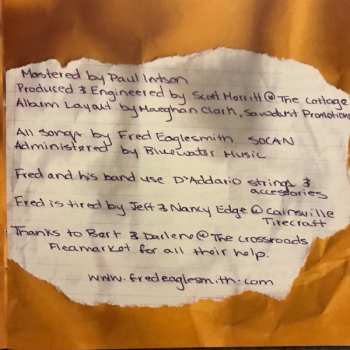 Mastered by Paul Intson
Produced & Engineered by Scott Merritt @ The Cottage
Album Layout by Maeghan Clark, Sawdust Promotions
All songs by Fred Eaglesmith SOCAN
Administered by Bluewater Music
Fred and his band use D'Addario strings &
accessories
Fred is tired by Jeff & Nancy Edge @ Cainsville
Tirecraft
Thanks to Bert & Darlene @ The Crossroads
Fleamarket for all their help.
www.fredeaglesmith.com